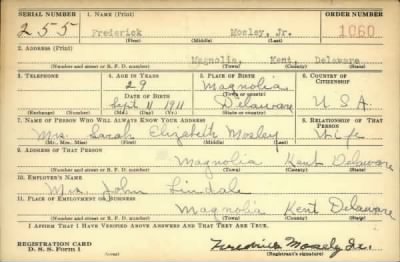 SERIAL NUMBER 1. NAME (Print) ORDER NUMBER
255 Frederick Mosley, Jr. 1060
(First) (Middle) (Last)
2. ADDRESS (Print)
Magnolia, Kent, Delaware
(Number and street or R. F. D. number) (Town) (County) (State)
3. TELEPHONE 4. AGE IN YEARS 5. PLACE OF BIRTH 6. COUNTRY OF CITIZENSHIP
29 Magnolia
DATE OF BIRTH (Town or county)
Sept 11 1911 Delaware U.S.A.
(Exchange) (Number) (Mo.) (Day) (Yr.) (State or country)
7. NAME OF PERSON WHO WILL ALWAYS KNOW YOUR ADDRESS 8. RELATIONSHIP OF THAT PERSON
Mrs. Sarah Elizabeth Mosley Wife
(Mr., Mrs., Miss) (First) (Middle) (Last)
9. ADDRESS OF THAT PERSON
Magnolia Kent Delaware
(Number and street or R. F. D. number) (Town) (County) (State)
10. EMPLOYER'S NAME
Mrs. John Lindale
11. PLACE OF EMPLOYMENT OR BUSINESS
Magnolia Kent Delaware
(Number and street or R. F. D. number) (Town) (County) (State)
I AFFIRM THAT I HAVE VERIFIED ABOVE ANSWERS AND THAT THEY ARE TRUE.
REGISTRATION CARD
D. S. S. Form 1 Frederick Mosely Jr.
(Registrant's signature)